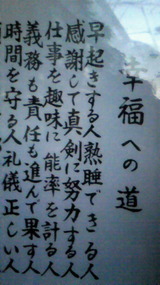 幸福への道
早起きする人熟睡できる人
感謝して真剣に努力する人
仕事を趣味に能率を計る人
義務も責任も進んで果す人
時間を守る人礼儀正しい人